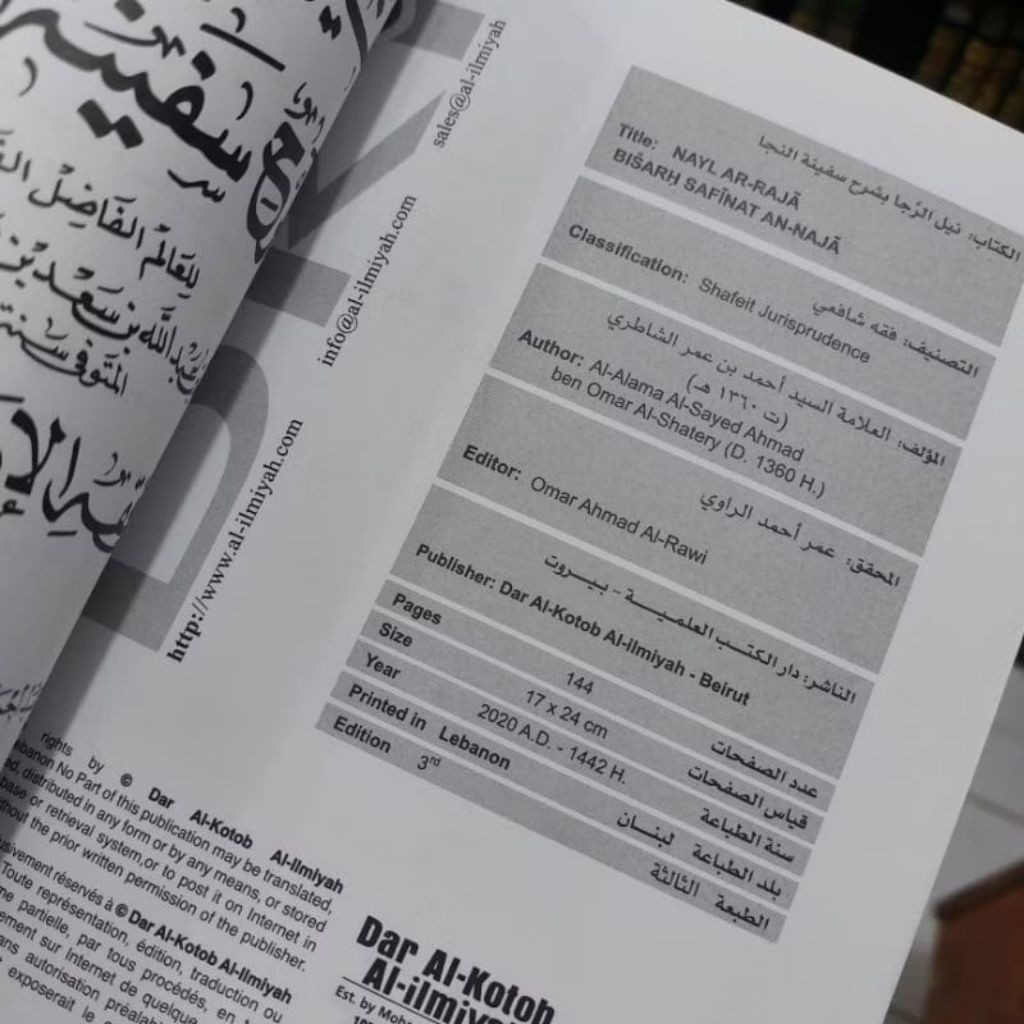 سفينة
للعالم الفاضل
عبد الله بن سعد بن
المتوفى سنة
sales@al-ilmiyah
info@al-ilmiyah.com
http://www.al-ilmiyah.com
الكتاب: نيل الرَّجا بشرح سفينة النجا
Title: NAYL AR-RAJĀ
BIŠARḤ SAFĪNAT AN-NAJĀ
التصنيف: فقه شافعي
Classification: Shafeit Jurisprudence
المؤلف: العلامة السيد أحمد بن عمر الشاطري
(ت ١٣٦٠ هـ)
Author: Al-Alama Al-Sayed Ahmad
ben Omar Al-Shatery (D. 1360 H.)
المحقق: عمر أحمد الراوي
Editor: Omar Ahmad Al-Rawi
الناشر: دار الكتب العلميـــة - بيـروت
Publisher: Dar Al-Kotob Al-ilmiyah - Beirut
Pages 144 عدد الصفحات
Size 17 x 24 cm قياس الصفحات
Year 2020 A.D. - 1442 H. سنة الطباعة
Printed in Lebanon بلد الطباعة لبنـــان
Edition 3rd الطبعة الثالثة
rights by © Dar Al-Kotob Al-Ilmiyah
No Part of this publication may be translated,
distributed in any form or by any means, or stored
or retrieval system,or to post it on Internet in
the prior written permission of the publisher.
réservés à © Dar Al-Kotob Al-Ilmiyah
Toute représentation, édition, traduction ou
partielle, par tous procédés, en
sur Internet de quelque
autorisation
exposerait le
Dar Al-Kotob
Al-ilmiyah
Est. by